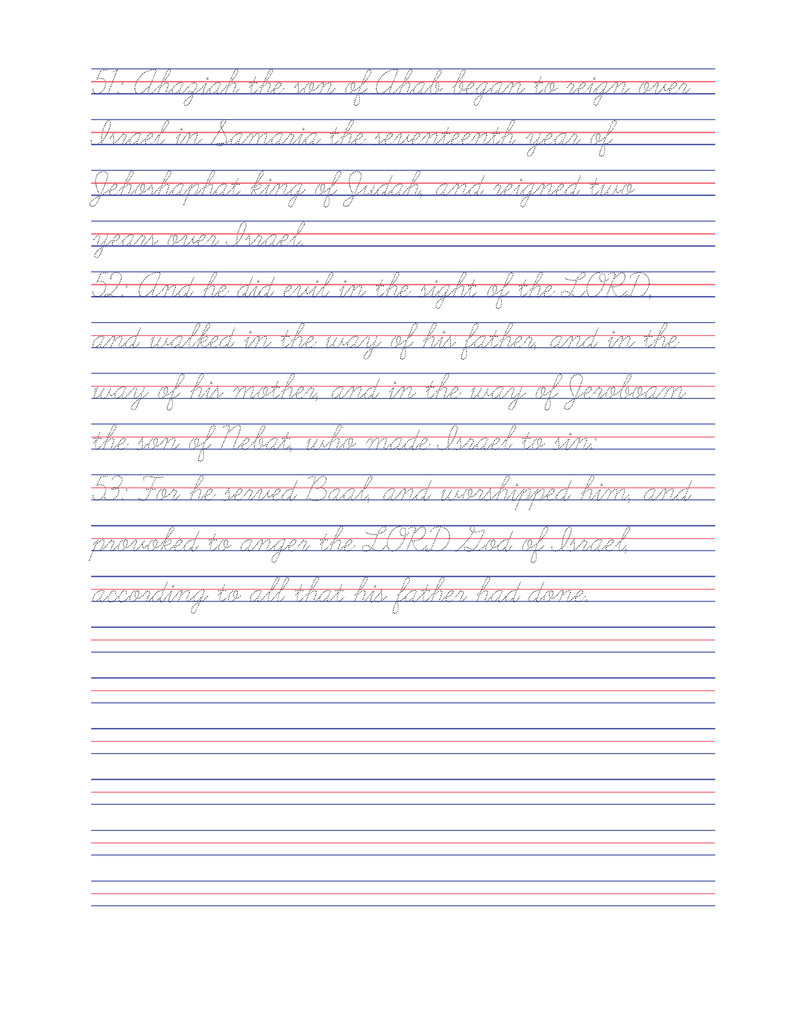 51: Ahaziah the son of Ahab began to reign over
Israel in Samaria the seventeenth year of
Jehoshaphat king of Judah, and reigned two
years over Israel.
52: And he did evil in the sight of the LORD,
and walked in the way of his father, and in the
way of his mother, and in the way of Jeroboam
the son of Nebat, who made Israel to sin:
53: For he served Baal, and worshipped him, and
provoked to anger the LORD God of Israel,
according to all that his father had done.